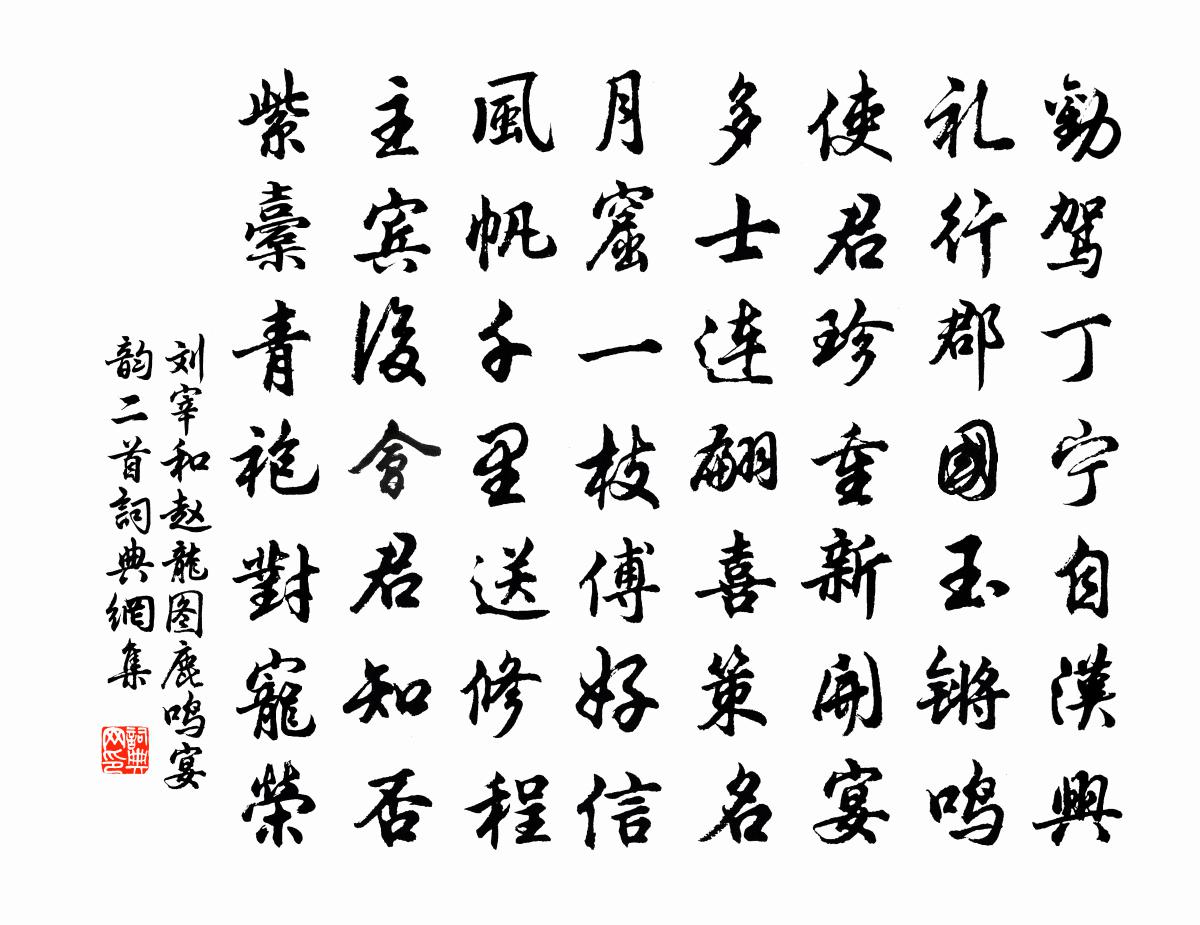 勸駕丁宁自漢興
礼行郡國玉锵鸣
使君珍重新開宴
多士连翩喜策名
月窟一枝傅好信
風帆千里送修程
主宾後會君知否
紫橐青袍對寵榮
刘宰和赵龍图鹿鸣宴
韵二首詞典網集
詞典网印